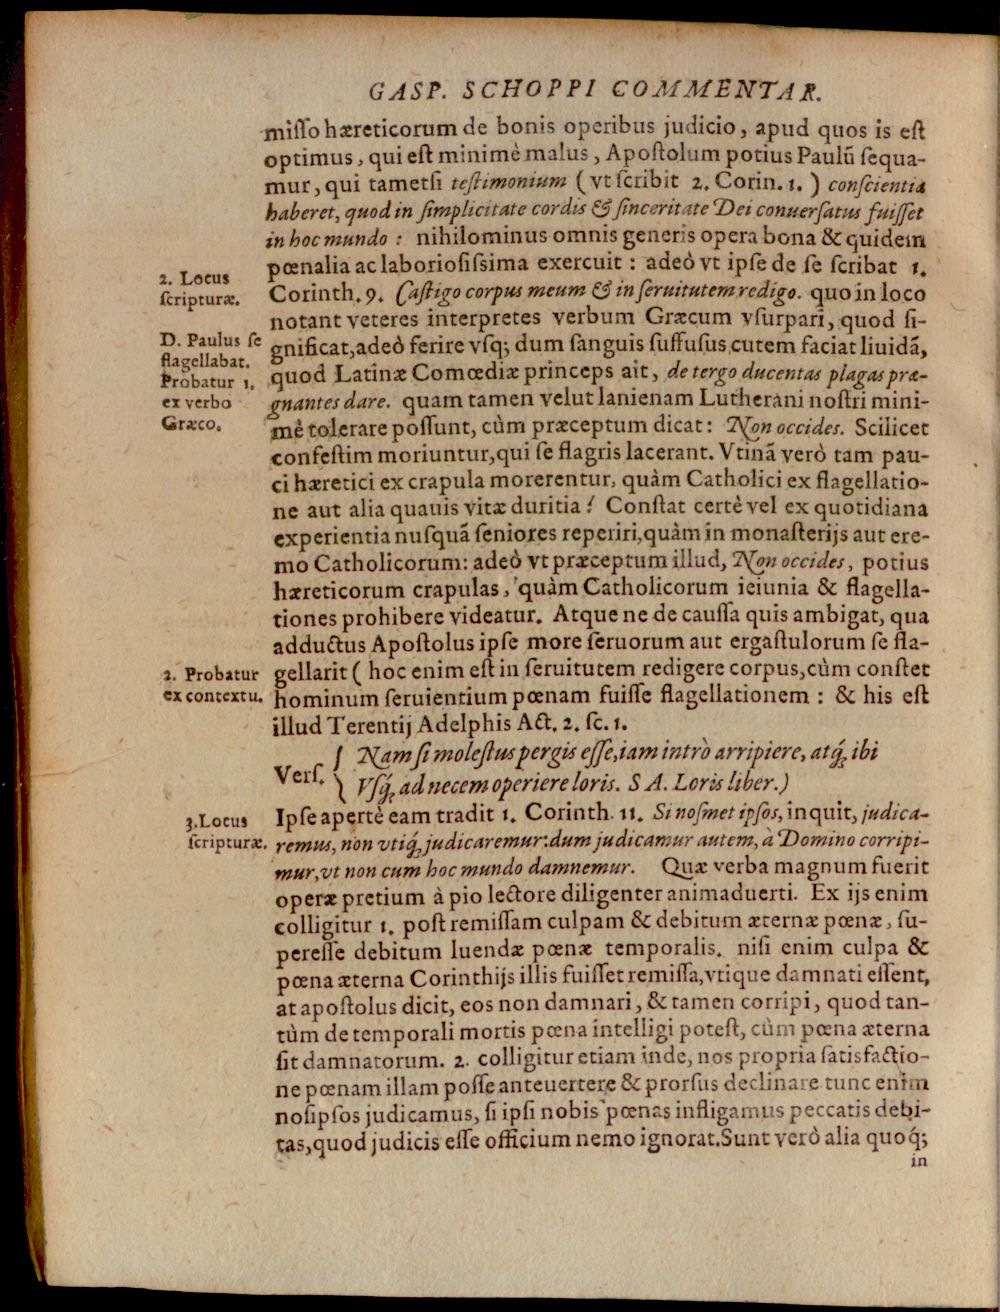 GASP. SCHOPPI COMMENTAR.
miſſo hæreticorum de bonis operibus judicio, apud quos is eſt
optimus, qui eſt minimè malus, Apoſtolum potius Paulū ſequa-
mur, qui tametſi teſtimonium (vt ſcribit 2. Corin. 1.) conſcientia
haberet, quod in ſimplicitate cordis & ſinceritate Dei conuerſatus fuiſſet
in hoc mundo: nihilominus omnis generis opera bona & quidem
pœnalia ac laborioſiſsima exercuit: adeò vt ipſe de ſe ſcribat 1.
2. Locus
ſcripturæ.
Corinth. 9. Caſtigo corpus meum & in ſeruitutem redigo. quo in loco
notant veteres interpretes verbum Græcum vſurpari, quod ſi-
D. Paulus ſe
flagellabat.
Probatur 1.
ex verbo
Græco.
gnificat, adeò ferire vſq; dum ſanguis ſuffuſus cutem faciat liuidā,
quod Latinæ Comœdiæ princeps ait, de tergo ducentas plagas præ-
gnantes dare. quam tamen velut lanienam Lutherani noſtri mini-
mè tolerare poſſunt, cùm præceptum dicat: Non occides. Scilicet
confeſtim moriuntur, qui ſe flagris lacerant. Vtinā verò tam pau-
ci hæretici ex crapula morerentur, quàm Catholici ex flagellatio-
ne aut alia quauis vitæ duritia! Conſtat certè vel ex quotidiana
experientia nuſquā ſeniores reperiri, quàm in monaſterijs aut ere-
mo Catholicorum: adeò vt præceptum illud, Non occides, potius
hæreticorum crapulas, quàm Catholicorum ieiunia & flagella-
tiones prohibere videatur. Atque ne de cauſſa quis ambigat, qua
adductus Apoſtolus ipſe more ſeruorum aut ergaſtulorum ſe fla-
2. Probatur
ex contextu.
gellarit (hoc enim eſt in ſeruitutem redigere corpus, cùm conſtet
hominum ſeruientium pœnam fuiſſe flagellationem: & his eſt
illud Terentij Adelphis Act. 2. ſc. 1.
Verſ. { Nam ſi moleſtus pergis eſſe, iam intrò arripiere, atq́; ibi
Vſq́; ad necem operiere loris. S A. Loris liber.)
3. Locus
ſcripturæ.
Ipſe apertè eam tradit 1. Corinth. 11. Si noſmet ipſos, inquit, judica-
remus, non vtiq́; judicaremur: dum judicamur autem, à Domino corripi-
mur, vt non cum hoc mundo damnemur. Quæ verba magnum fuerit
operæ pretium à pio lectore diligenter animaduerti. Ex ijs enim
colligitur 1. poſt remiſſam culpam & debitum æternæ pœnæ, ſu-
pereſſe debitum luendæ pœnæ temporalis. niſi enim culpa &
pœna æterna Corinthijs illis fuiſſet remiſſa, vtique damnati eſſent,
at apoſtolus dicit, eos non damnari, & tamen corripi, quod tan-
tùm de temporali mortis pœna intelligi poteſt, cùm pœna æterna
ſit damnatorum. 2. colligitur etiam inde, nos propria ſatisfactio-
ne pœnam illam poſſe anteuertere & prorſus declinare tunc enim
noſipſos judicamus, ſi ipſi nobis pœnas infligamus peccatis debi-
tas, quod judicis eſſe officium nemo ignorat. Sunt verò alia quoq́;
in